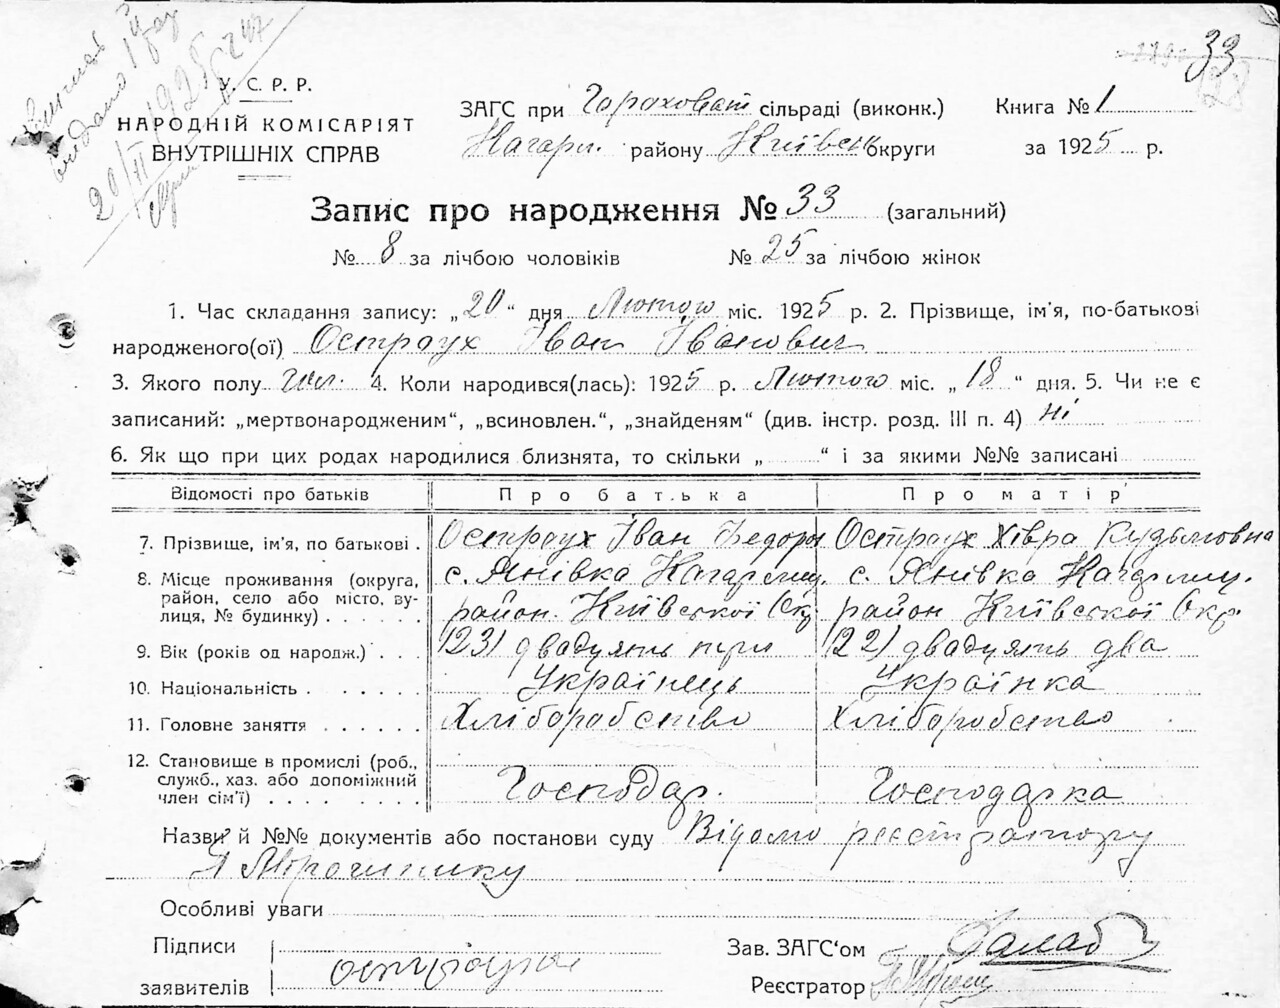 33
У. С. Р. Р.
НАРОДНІЙ КОМІСАРІЯТ
ВНУТРІШНІХ СПРАВ
ЗАГС при Гороховат сільраді (виконк.)
Книга № 1
Кагарл. району Київськ округи
за 1925 р.
Запис про народження № 33 (загальний)
№ 8 за лічбою чоловіків № 25 за лічбою жінок
1. Час складання запису: „20“ дня Лютого міс. 1925 р. 2. Прізвище, ім'я, по-батькові
народженого(ої) Остраух Іван Іванович
3. Якого полу чол. 4. Коли народився(лась): 1925 р. Лютого міс. „18“ дня. 5. Чи не є
записаний: „мертвонародженим“, „всиновлен.“, „знайденям“ (див. інстр. розд. III п. 4) ні
6. Як що при цих родах народилися близнята, то скільки „ “ і за якими №№ записані
Відомості про батьків Про батька Про матір
7. Прізвище, ім'я, по батькові . Остраух Іван Федоры Остраух Хівра Кузьмовна
8. Місце проживання (округа, с. Янівка Кагарлиц. с. Янівка Кагарлиц.
район, село або місто, ву- район. Київської Окр. район Київської Окр.
лиця, № будинку) . . . . . .
9. Вік (років од народж.) . . . (23) двадцять три (22) двадцять два
10. Національність . . . . . . Українець Українка
11. Головне заняття . . . . . . Хліборобство Хліборобство
12. Становище в промислі (роб.,
служб., хаз. або допоміжний Господар. Господарка
член сім'ї) . . . . . . . .
Назви й №№ документів або постанови суду Відомо реєстратору
Особливі уваги
Підписи
заявителів
Зав. ЗАГС'ом
Реєстратор